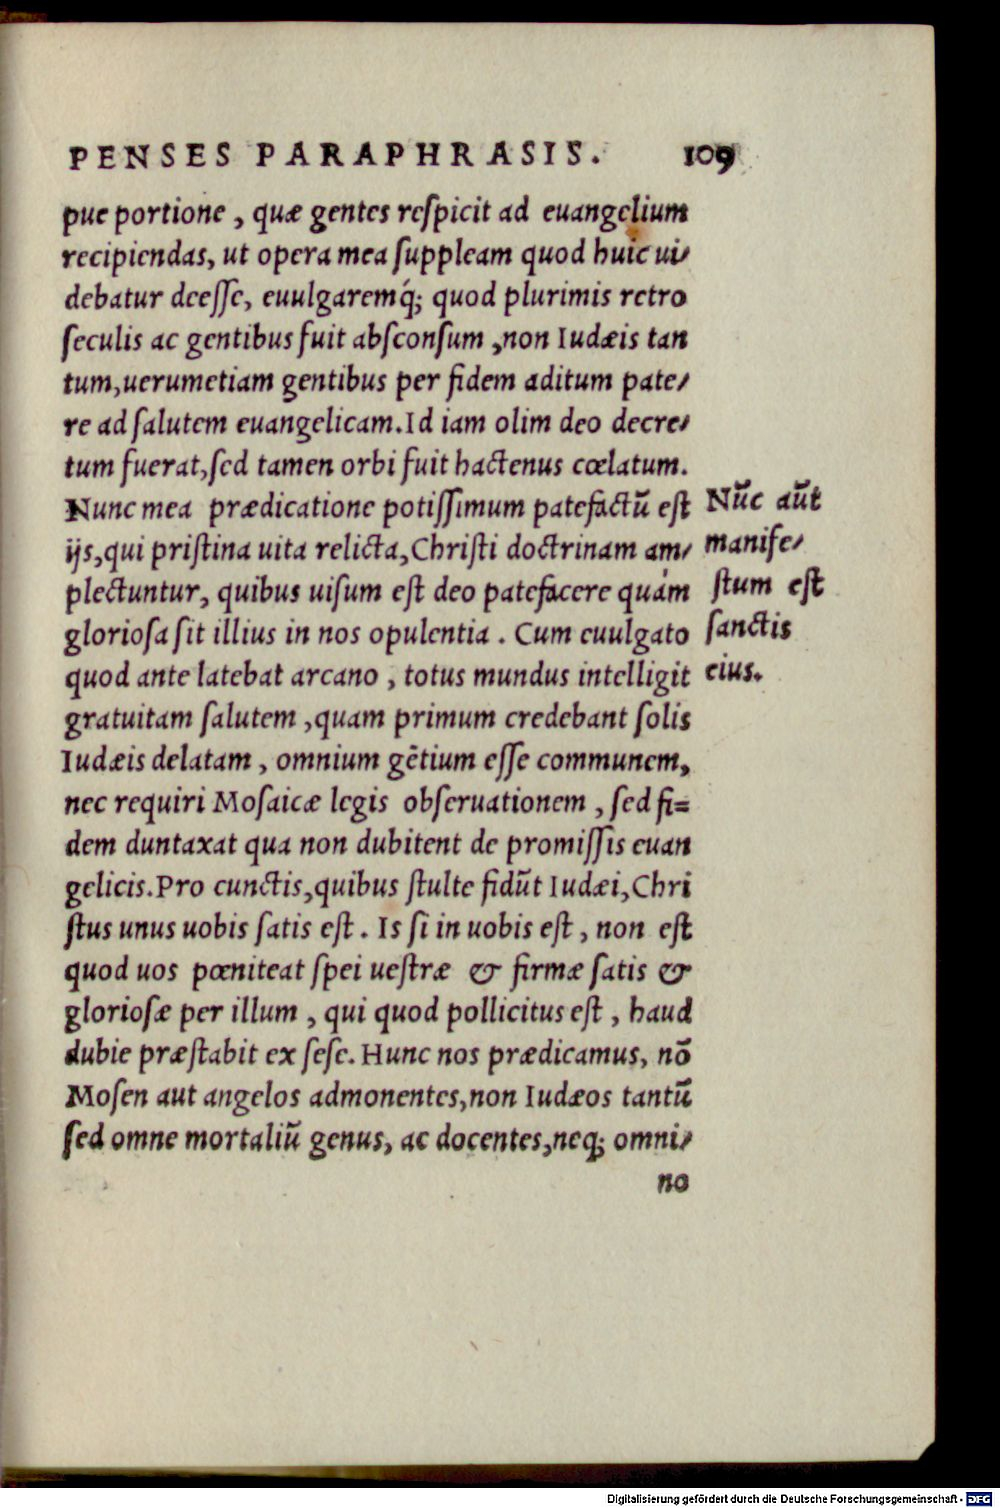 PENSES PARAPHRASIS. 109
pue portione, quæ gentes reſpicit ad euangelium
recipiendas, ut opera mea ſuppleam quod huic ui⸗
debatur deeſſe, euulgaremq́; quod plurimis retro
ſeculis ac gentibus fuit abſconſum, non Iudæis tan
tum, uerumetiam gentibus per fidem aditum pate⸗
re ad ſalutem euangelicam. Id iam olim deo decre⸗
tum fuerat, ſed tamen orbi fuit hactenus cœlatum.
Nunc mea prædicatione potiſſimum patefactū eſt
ijs, qui priſtina uita relicta, Chriſti doctrinam am⸗
plectuntur, quibus uiſum eſt deo patefacere quàm
glorioſa ſit illius in nos opulentia. Cum euulgato
quod ante latebat arcano, totus mundus intelligit
gratuitam ſalutem, quam primum credebant ſolis
Iudæis delatam, omnium gētium eſſe communem,
nec requiri Moſaicæ legis obſeruationem, ſed fi=
dem duntaxat qua non dubitent de promiſſis euan
gelicis. Pro cunctis, quibus ſtulte fidūt Iudæi, Chri
ſtus unus uobis ſatis eſt. Is ſi in uobis eſt, non eſt
quod uos pœniteat ſpei ueſtræ & firmæ ſatis &
glorioſæ per illum, qui quod pollicitus eſt, haud
dubie præſtabit ex ſeſe. Hunc nos prædicamus, nō
Moſen aut angelos admonentes, non Iudæos tantū
ſed omne mortaliū genus, ac docentes, neq; omni⸗
no
Nūc aūt
manife⸗
ſtum eſt
ſanctis
eius.
Digitalisierung gefördert durch die Deutsche Forschungsgemeinschaft - DFG